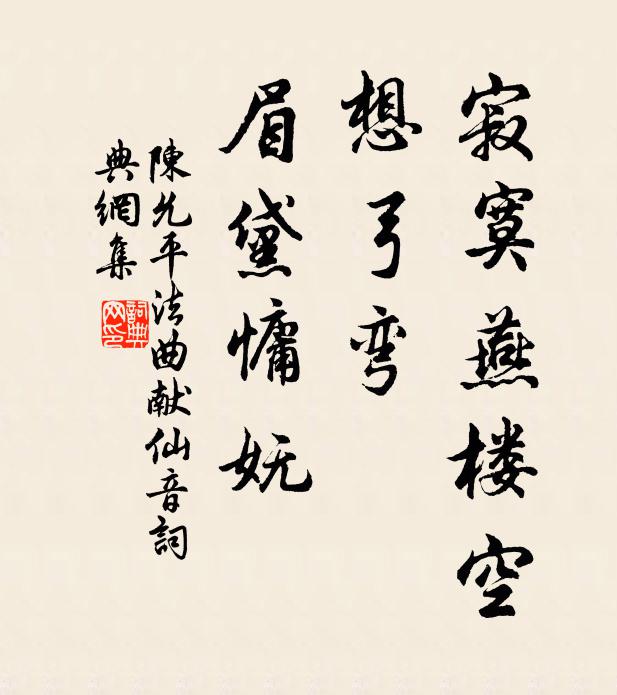 寂寞燕楼空
想弓弯
眉黛慵妩
陳允平法曲献仙音詞
典網集
詞典
网印